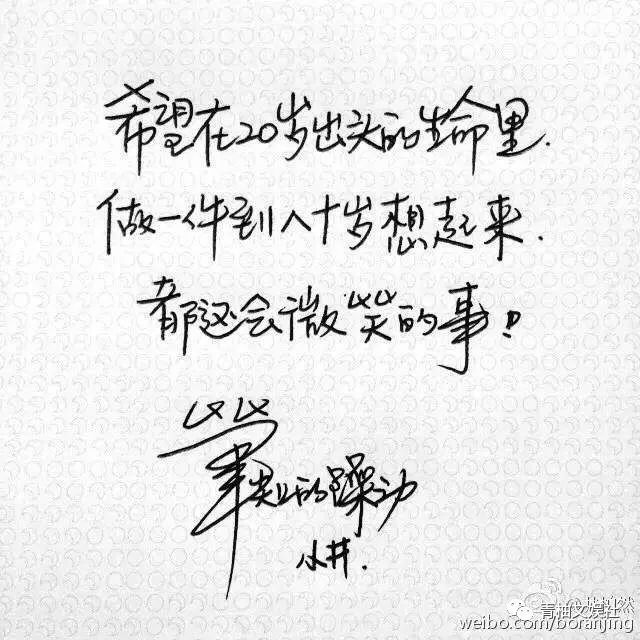 希望在20岁出头的生命里.
做一件到八十岁想起来.
都还会微笑的事!
笔尖上的躁动
小井.
青柚文娱社
weibo.com/boranjing